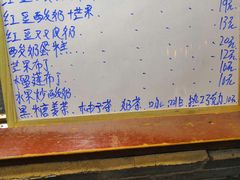 红豆酸奶+芒果 19元
红豆双皮奶 13元
酸奶蛋糕 20元
芒果布丁 12元
榴莲布丁 16元
水果炒酸奶 16元
黑糖姜茶、柚子茶、奶茶、咖啡、热巧克力 10元